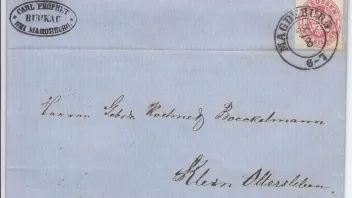 CARL PROPHET
BUCKAU
BEI MAGDEBURG
MAGDEBURG
6-7
Herren Gebrüder Boeckelmann
Klein Ottersleben